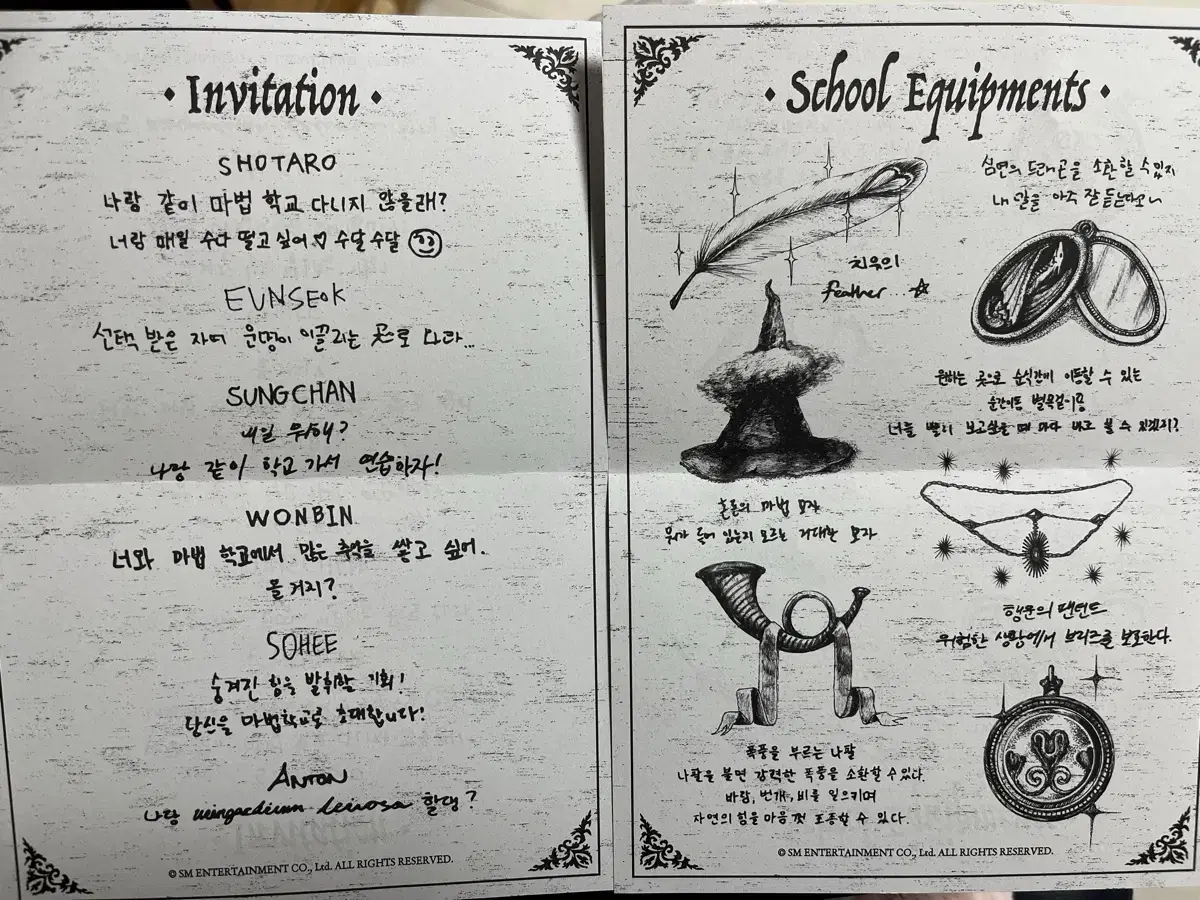 Invitation
SHOTARO
나랑 같이 마법 학교 다니지 않을래?
너랑 매일 수다 떨고 싶어♡ 수달수달
EUNSEOK
선택 받은 자여 운명이 이끌리는 곳으로 나와...
SUNGCHAN
내일 뭐해?
나랑 같이 학교 가서 연습하자!
WONBIN
너와 마법 학교에서 많은 추억을 쌓고 싶어.
올거지?
SOHEE
숨겨진 힘을 발휘할 기회!
당신을 마법학교로 초대합니다!
ANTON
나랑 wingardium leviosa 할댕?
© SM ENTERTAINMENT CO., Ltd. ALL RIGHTS RESERVED.
School Equipments
심연의 드래곤을 소환할 수 있지
내 말을 아주 잘 듣는다고~
치유의
feather...☆
원하는 곳으로 순식간에 이동할 수 있는
순간이동 벌목걸이용
너를 빨리 보고싶을 때 마다 바로 볼 수 있겠지?
혼돈의 마법 모자
뭐가 들어 있는지 모르는 거대한 모자
행운의 펜던트
위험한 상황에서 브리즈를 보호한다.
폭풍을 부르는 나팔
나팔을 불면 강력한 폭풍을 소환할 수 있다.
바람, 번개, 비를 일으키며
자연의 힘을 마음껏 조종할 수 있다.
© SM ENTERTAINMENT CO., Ltd. ALL RIGHTS RESERVED.